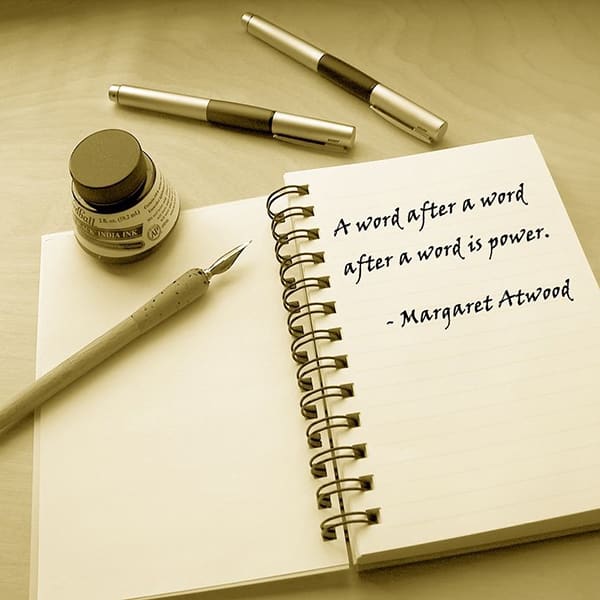 A word after a word
after a word is power.
- Margaret Atwood
INDIA INK